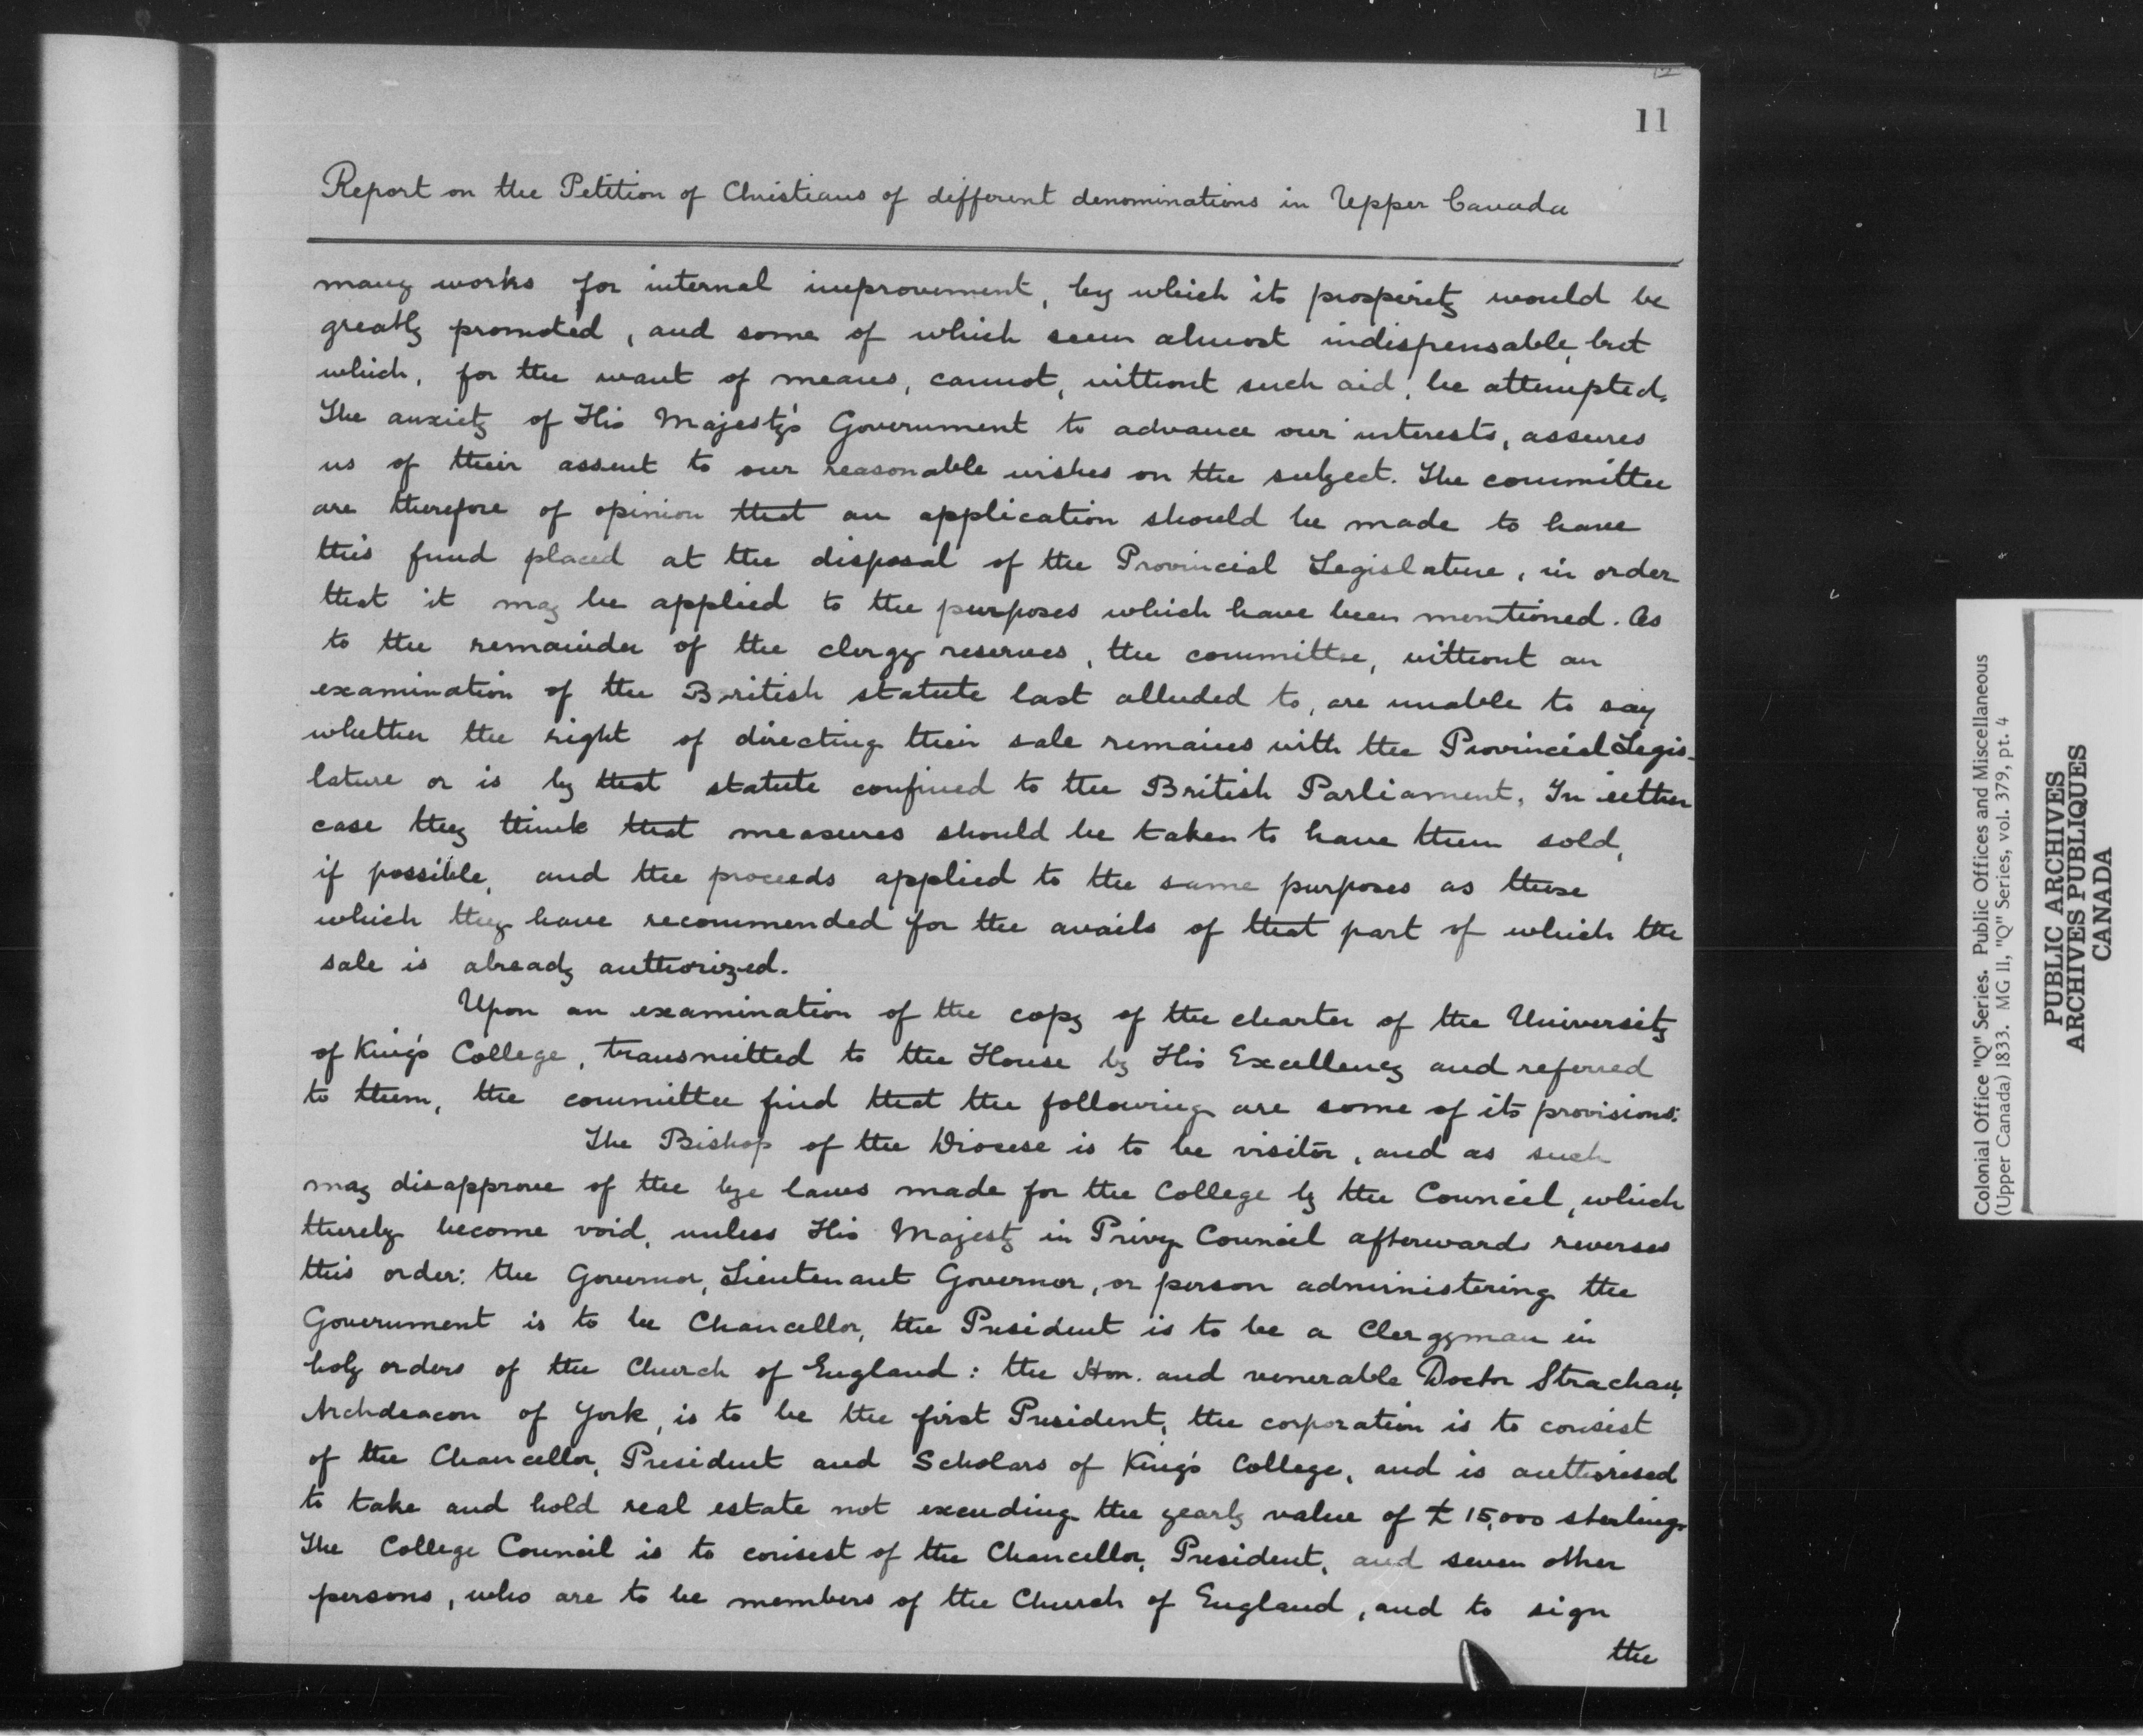 12
11
Report on the Petition of Christians of different denominations in Upper Canada
many works for internal improvement, by which its prosperity would be
greatly promoted, and some of which seem almost indispensable, but
which, for the want of means, cannot, without such aid, be attempted.
The anxiety of His Majesty's Government to advance our interests, assures
us of their assent to our reasonable wishes on the subject. The committee
are therefore of opinion that an application should be made to have
this fund placed at the disposal of the Provincial Legislature, in order
that it may be applied to the purposes which have been mentioned. As
to the remainder of the clergy reserves, the committee, without an
examination of the British statute last alluded to, are unable to say
whether the right of directing their sale remains with the Provincial Legis-
lature or is by that statute confined to the British Parliament, In either
case they think that measures should be taken to have them sold,
if possible, and the proceeds applied to the same purposes as those
which they have recommended for the avails of that part of which the
sale is already authorized.
Upon an examination of the copy of the charter of the University
of King's College, transmitted to the House by His Excellency and referred
to them, the committee find that the following are some of its provisions:
The Bishop of the Diocese is to be visitor, and as such
may disapprove of the bye laws made for the College by the Council, which
thereby become void, unless His Majesty in Privy Council afterwards reverses
this order: the Governor, Lieutenant Governor, or person administering the
Government is to be Chancellor, the President is to be a Clergyman in
holy orders of the Church of England: the Hon. and venerable Doctor Strachan,
Archdeacon of York, is to be the first President, the corporation is to consist
of the Chancellor, President and Scholars of King's College, and is authorised
to take and hold real estate not exceeding the yearly value of £15,000 sterling.
The College Council is to consist of the Chancellor, President, and seven other
persons, who are to be members of the Church of England, and to sign
the
Colonial Office "Q" Series. Public Offices and Miscellaneous
(Upper Canada) 1833. MG 11, "Q" Series, vol. 379, pt. 4
PUBLIC ARCHIVES
ARCHIVES PUBLIQUES
CANADA